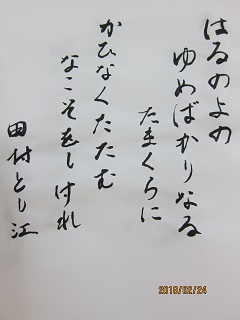 はるのよの
ゆめばかりなる
たまくらに
かひなくたたむ
なこそをしけれ
田村とし江
2018/02/24